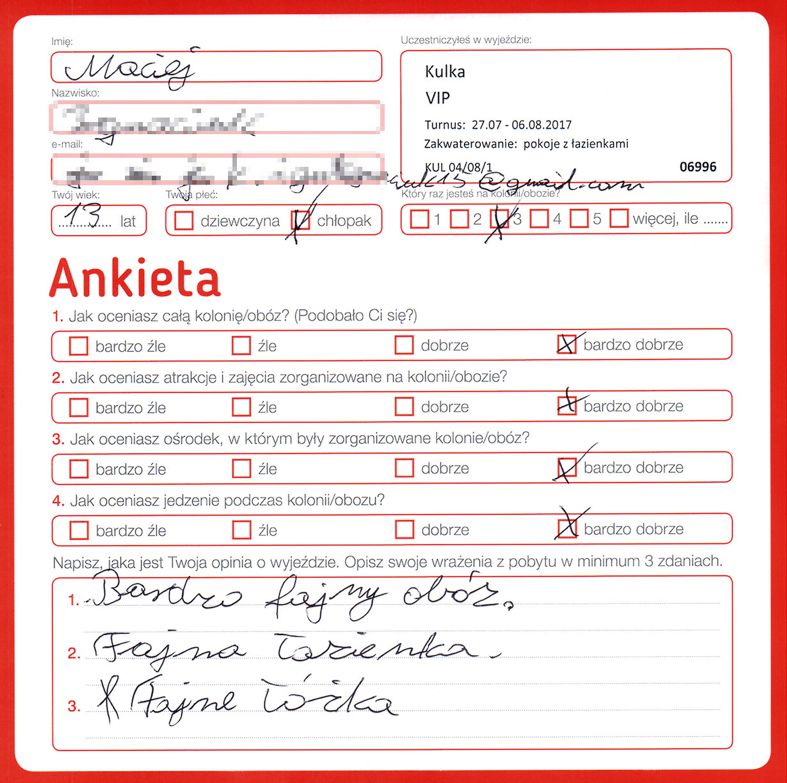 Imię:
Maciej
Nazwisko:
e-mail:
15@gmail.com
Uczestniczyłeś w wyjeździe:
Kulka
VIP
Turnus: 27.07 - 06.08.2017
Zakwaterowanie: pokoje z łazienkami
KUL 04/08/1 06996
Twój wiek:
13 lat
Twoja płeć:
dziewczyna chłopak
Który raz jesteś na kolonii/obozie?
1 2 3 4 5 więcej, ile .......
Ankieta
1. Jak oceniasz całą kolonię/obóz? (Podobało Ci się?)
bardzo źle źle dobrze bardzo dobrze
2. Jak oceniasz atrakcje i zajęcia zorganizowane na kolonii/obozie?
bardzo źle źle dobrze bardzo dobrze
3. Jak oceniasz ośrodek, w którym były zorganizowane kolonie/obóz?
bardzo źle źle dobrze bardzo dobrze
4. Jak oceniasz jedzenie podczas kolonii/obozu?
bardzo źle źle dobrze bardzo dobrze
Napisz, jaka jest Twoja opinia o wyjeździe. Opisz swoje wrażenia z pobytu w minimum 3 zdaniach.
1. Bardzo fajny obóz.
2. Fajna łazienka.
3. Fajne łóżka